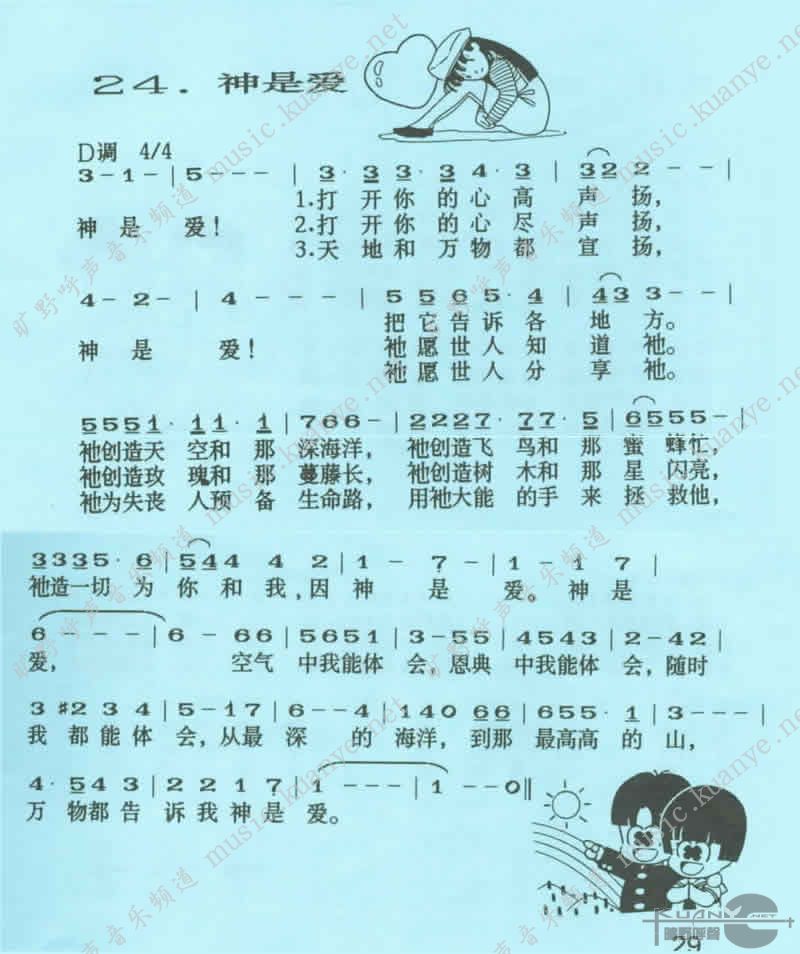 24．神是爱
D调 4/4
3 - 1 - | 5 - - - | 3· 3 3· 3 4· 3 | 3 2 2 - - |
神 是 爱！ 1.打 开 你 的 心 高 声 扬，
2.打 开 你 的 心 尽 声 扬，
3.天 地 和 万 物 都 宣 扬，
4 - 2 - | 4 - - - | 5 5 6 5· 4 | 4 3 3 - - |
把 它 告 诉 各 地 方。
神 是 爱！ 祂 愿 世 人 知 道 祂。
祂 愿 世 人 分 享 祂。
5 5 5 1· 1 1· 1 | 7 6 6 - | 2 2 2 7· 7 7· 5 | 6 5 5 5 - |
祂创造天 空和 那 深海洋， 祂创造飞 鸟和 那 蜜 蜂忙，
祂创造玫 瑰和 那 蔓藤长， 祂创造树 木和 那 星 闪亮，
祂为失丧 人预 备 生命路， 用祂大能 的手 来 拯 救他，
3 3 3 5· 6 | 5 4 4 4 2 | 1 - 7 - | 1 - 1 7 |
祂造一切 为 你 和 我，因 神 是 爱。神 是
6 - - - | 6 - 6 6 | 5 6 5 1 | 3 - 5 5 | 4 5 4 3 | 2 - 4 2 |
爱， 空气 中我能体 会，恩典 中我能体 会，随时
3 #2 3 4 | 5 - 1 7 | 6 - - 4 | 1 4 0 6 6 | 6 5 5· 1 | 3 - - - |
我 都 能 体 会，从最 深 的 海洋，到那 最高高 的 山，
4· 5 4 3 | 2 2 1 7 | 1 - - - | 1 - - 0 ‖
万 物都 告 诉 我 神 是 爱。
旷野呼声音乐频道 music.kuanye.net
KUANYE.NET
旷野呼聲
29